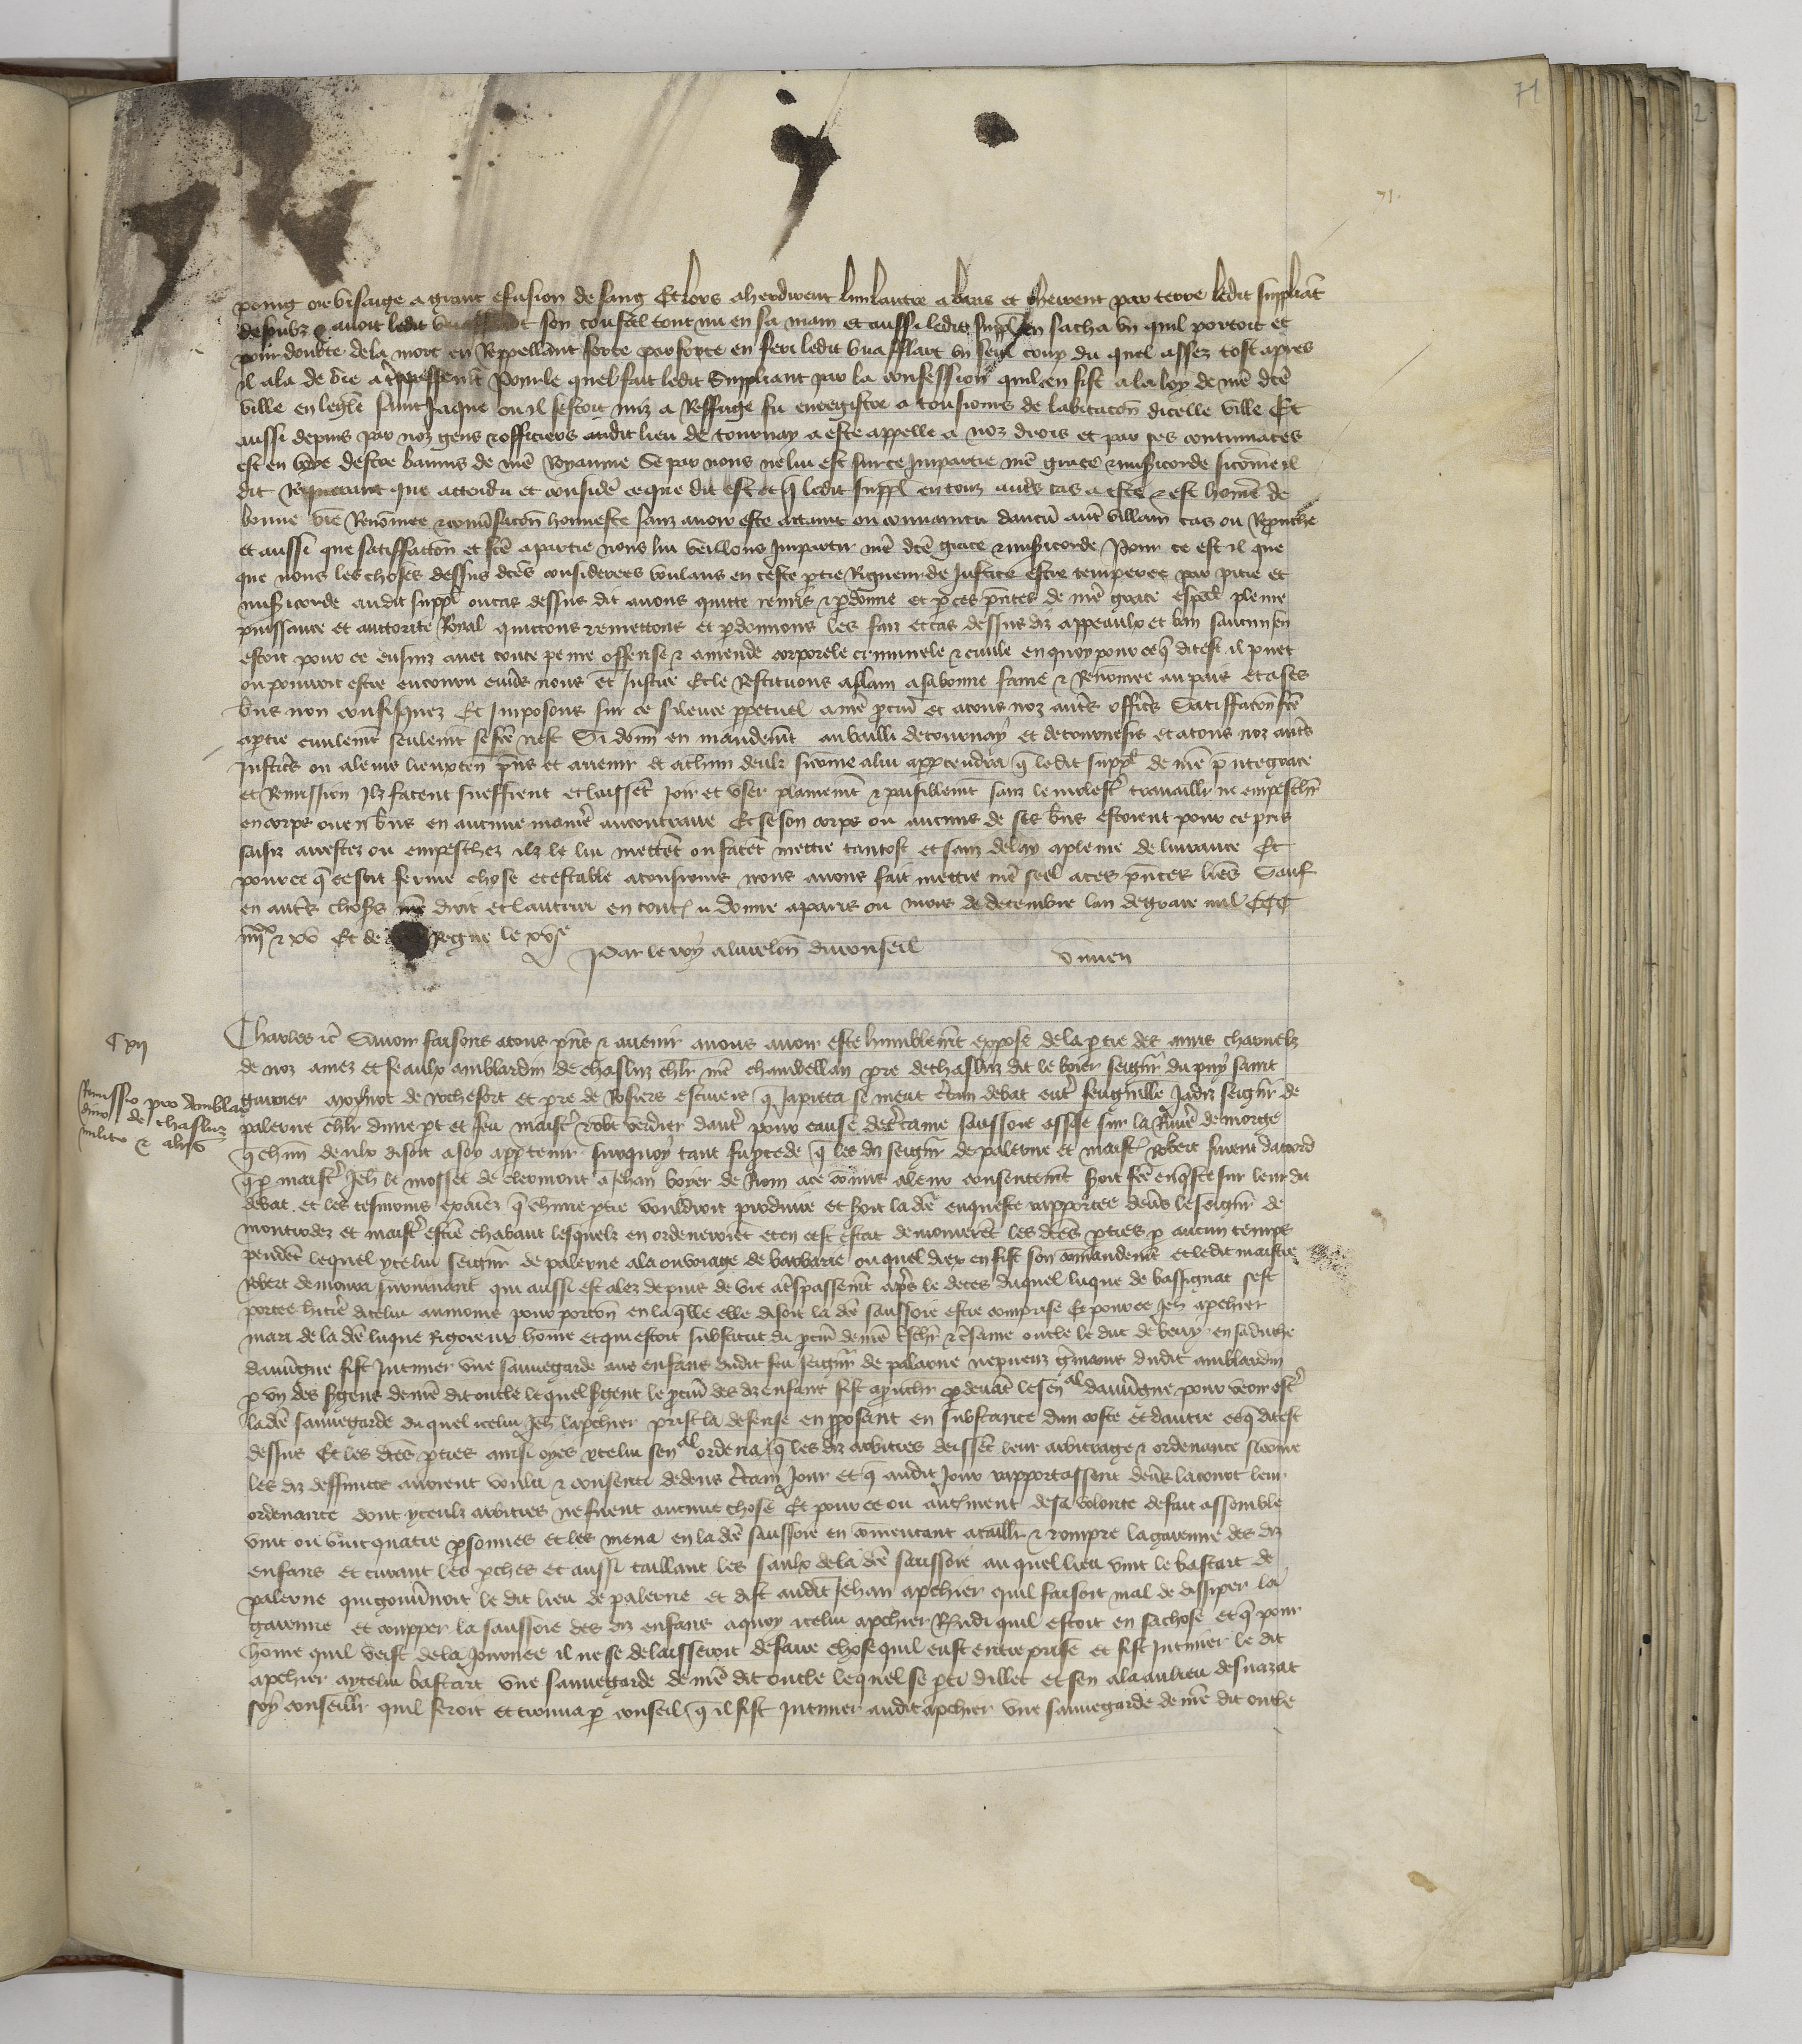 71
71.
poing ou visaige a grant efusion de sang Et lors aherdirent lun lautre a bras et cheirent par terre ledit suppliant
dessoubz & avoit ledit son coustel tout nu en sa main et aussi ledit suppl en sacha un quil portoit et
pour doubte de la mort en Reppellant force par force en feri ledit un seul coup du quel assez tost apres
il ala de vie a trespassement Pour le quel fait ledit Suppliant par la confession quil en fist a la loy de nre dce
ville en leglise saint Jaque ou il sestoit miz a Reffuge fu enregistre a tousiours de labitacon dicelle ville Et
aussi depuis par noz gens & officiers audit lieu de tournay a este appelle a noz drois et par ses contumaces
est en voye destre bannis de nre Royaume Se par nous ne lui est sur ce Impartie nre grace & misericorde sicomme il
dit Requerant que attendu et considere ce que dit est et que ledit suppl en touz autres cas a este & est homme de
bonne vie Renommee & conversacon honneste sanz avoir este attaint ou convaincu daucun autre villain cas ou Reprouche
et aussi que satisfaction est fce a partie nous lui veullons Impartir nre dce grace & misericorde Pour ce est il que
que nous les choses dessus dces considerees voulans en ceste ptie Rigueur de Justice estre temperee par pitie et
misericorde audit suppl ou cas dessus dit avons quitte remis & pdonne et p ces pntes de nre grace espal pleine
puissance et auctorite Royal quictons remettons et pdonnons les faiz et cas dessus diz appeaulx et ban saucun sen
estoit pour ce ensuiz avec toute peine offense & amende corporele criminele & civile en quoy pour ce q dit est il puet
ou pourroit estre encouru envers nous et Justice Et le Restituons a plain a sa bonne fame & Renommee au pais et a ses
biens non confisquez Et Imposons sur ce silence ppetuel a nre pcur et a touz noz autres officiers Satisfacon fce
a ptie civilement seulement se fce nest Si donn en mandement au bailli de tournay et de tournesis et a touz noz autres
Justiciers ou a leurs lieuxten pns et avenir et a chun deulz sicomme a lui apptendra q ledit suppl de nre pnte grace
et Remission Ilz facent sueffrent et laissent joir et user plainement & paisiblement sanz le molester travaillr ne empeschr
en corps ou en biens en aucune maniere au contraire Et se son corps ou aucuns de ses biens estoient pour ce pris
saisiz arrestez ou empeschez ilz le lui mettent ou facent mettre tantost et sanz delay a pleine delivrance Et
pour ce q ce soit ferme chose et estable a tousiours nous avons fait mettre nre seel a ces pntes lres Sauf
en autres choses nre droit et lautrui en toutes donne a paris ou mois de decembre lan de grace mil CCC
iiijxx & xv Et de Regne le xvje
Par le roy a la relon du conseil
vinien
C xij
Remissio pro Amblar
dino de Chasluz
milite & aliis
Charles &c Savoir faisons a tous pns & avenir a nous avoir este humblement expose de la ptie des amis charnelz
de noz amez et feaulx amblardin de chasluz chlr nre chambellan pre de chasluz dit le boier seignr du puy saint
gaunier aymot de rochefort et pre de Rosiers escuiers q Japieca se meut certain debat entre feu Jadiz seignr de
palerne chlr dune pt et feu maistre robt verdier dautre pour cause de certaine saussoie assise sur la Riviere de morge
q chun deulx disoit a soy apptenir surquoy tant fu pcede q les diz seignr de palerne et maistre Robert furent daccord
q p maistre Jeh le mosset de clermont & Jehan boyer de Riom a ce commis a leur consentement soit fce enqueste sur leur dit
debat et les tesmoins exainez q chune ptie vouldroit produire et soit la dce enqueste rapportee devers le seignr de
montrodez et maistre estiene chabaut lesquelz en ordeneroient et en cest estat demourerent les dces pties p aucun temps
pendent lequel ycelui seignr de palerne ala ou voiage de barbarie ouquel dieu en fist son comandement et ledit maistre
Robert demoura survivant qui aussi est alez depuis de vie a trespassement apres le deces duquel luque de bassignat sest
portee heritiere dicelui au moins pour porcon en laquelle elle disoit la dce saussoie estre comprise Et pour ce Jeh apchier
mari de la dce luque Rigoreux home et qui estoit substitut du pcur de nre treschr & tresame oncle le duc de berry en sa duche
dauvergne fist Intimer une sauvegarde aus enfans dudit feu seignr de palerne nepveuz germains dudit amblardin
p un des sergens de nre dit oncle lequel sergent le pcur des diz enfans fist apincher p devant le senal dauvergne pour veoir oster
la dce sauvegarde du quel icelui Jeh lapchier prist la defense en pposant en substance dun coste et dautre ce q dit est
dessus Et les dces pties ainsi oyes ycelui senal ordena q les diz arbitres deissent leur arbitrage & ordenance sicomme
les diz deffuncts avoient voulu & consenti dedens certain Jour et q audit Jour rapportassent devers la court leur
ordenance dont yceulx arbitres ne firent aucune chose Et pour ce ou autrement de sa volente de fait assembla
vint ou vint quatre psonnes et les mena en la dce saussoie en comencant a taillr & rompre la garenne des diz
enfans et tirant les pches et aussi taillant les saulx de la dce saussoie au quel lieu vint le bastart de
palerne qui gouvernoit le dit lieu de palerne et dist audit Jehan apchier quil faisoit mal de dissiper la
garenne et coupper la saussoie des diz enfans a quoy icelui apchier Rspndi quil estoit en sa chose et q pour
home quil veist de la Journee il ne se delaisseroit de faire chose quil eust entreprise et fist Intimer le dit
apchier a ycelui bastart une sauvegarde de nre dit oncle lequel se pti dillec et sen ala au lieu denazat
soy conseillr quil feroit et trouva p conseil q il fist Intimer audit apchier une sauvegarde de nre dit oncle